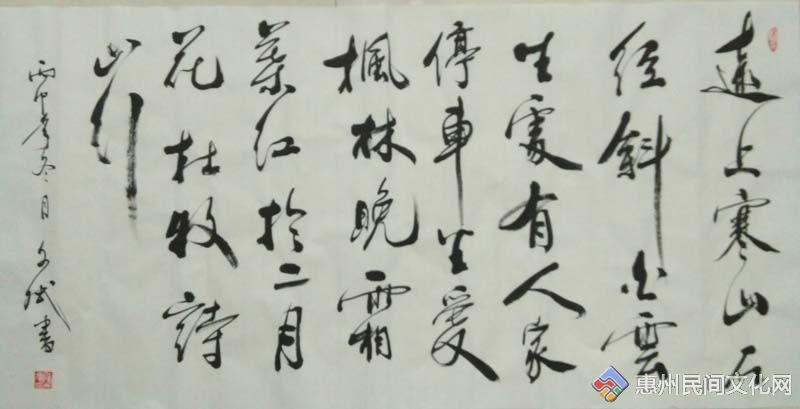 遠上寒山石
径斜白雲
生處有人家
停車坐愛
楓林晚霜
葉红於二月
花杜牧詩
山行
丙申年冬月文斌書
惠州民间文化网